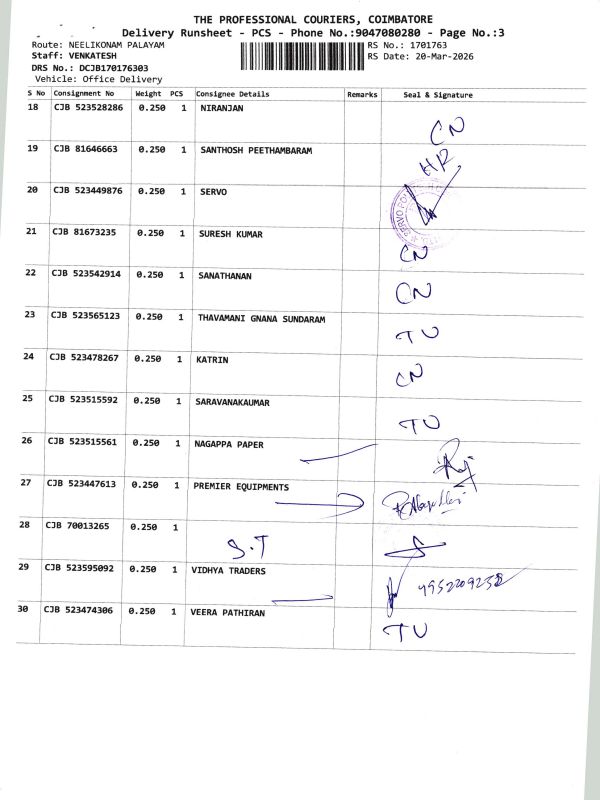 THE PROFESSIONAL COURIERS, COIMBATORE
Delivery Runsheet - PCS - Phone No.:9047080280 - Page No.:3
Route: NEELIKONAM PALAYAM
RS No.: 1701763
Staff: VENKATESH
RS Date: 20-Mar-2026
DRS No.: DCJB170176303
Vehicle: Office Delivery
S No Consignment No Weight PCS Consignee Details Remarks Seal & Signature
18 CJB 523528286 0.250 1 NIRANJAN
CN
19 CJB 81646663 0.250 1 SANTHOSH PEETHAMBARAM
HR
20 CJB 523449876 0.250 1 SERVO
21 CJB 81673235 0.250 1 SURESH KUMAR
CN
22 CJB 523542914 0.250 1 SANATHANAN
CN
23 CJB 523565123 0.250 1 THAVAMANI GNANA SUNDARAM
TU
24 CJB 523478267 0.250 1 KATRIN
CN
25 CJB 523515592 0.250 1 SARAVANAKAUMAR
TU
26 CJB 523515561 0.250 1 NAGAPPA PAPER
27 CJB 523447613 0.250 1 PREMIER EQUIPMENTS
28 CJB 70013265 0.250 1
S.T
29 CJB 523595092 0.250 1 VIDHYA TRADERS
30 CJB 523474306 0.250 1 VEERA PATHIRAN
TU